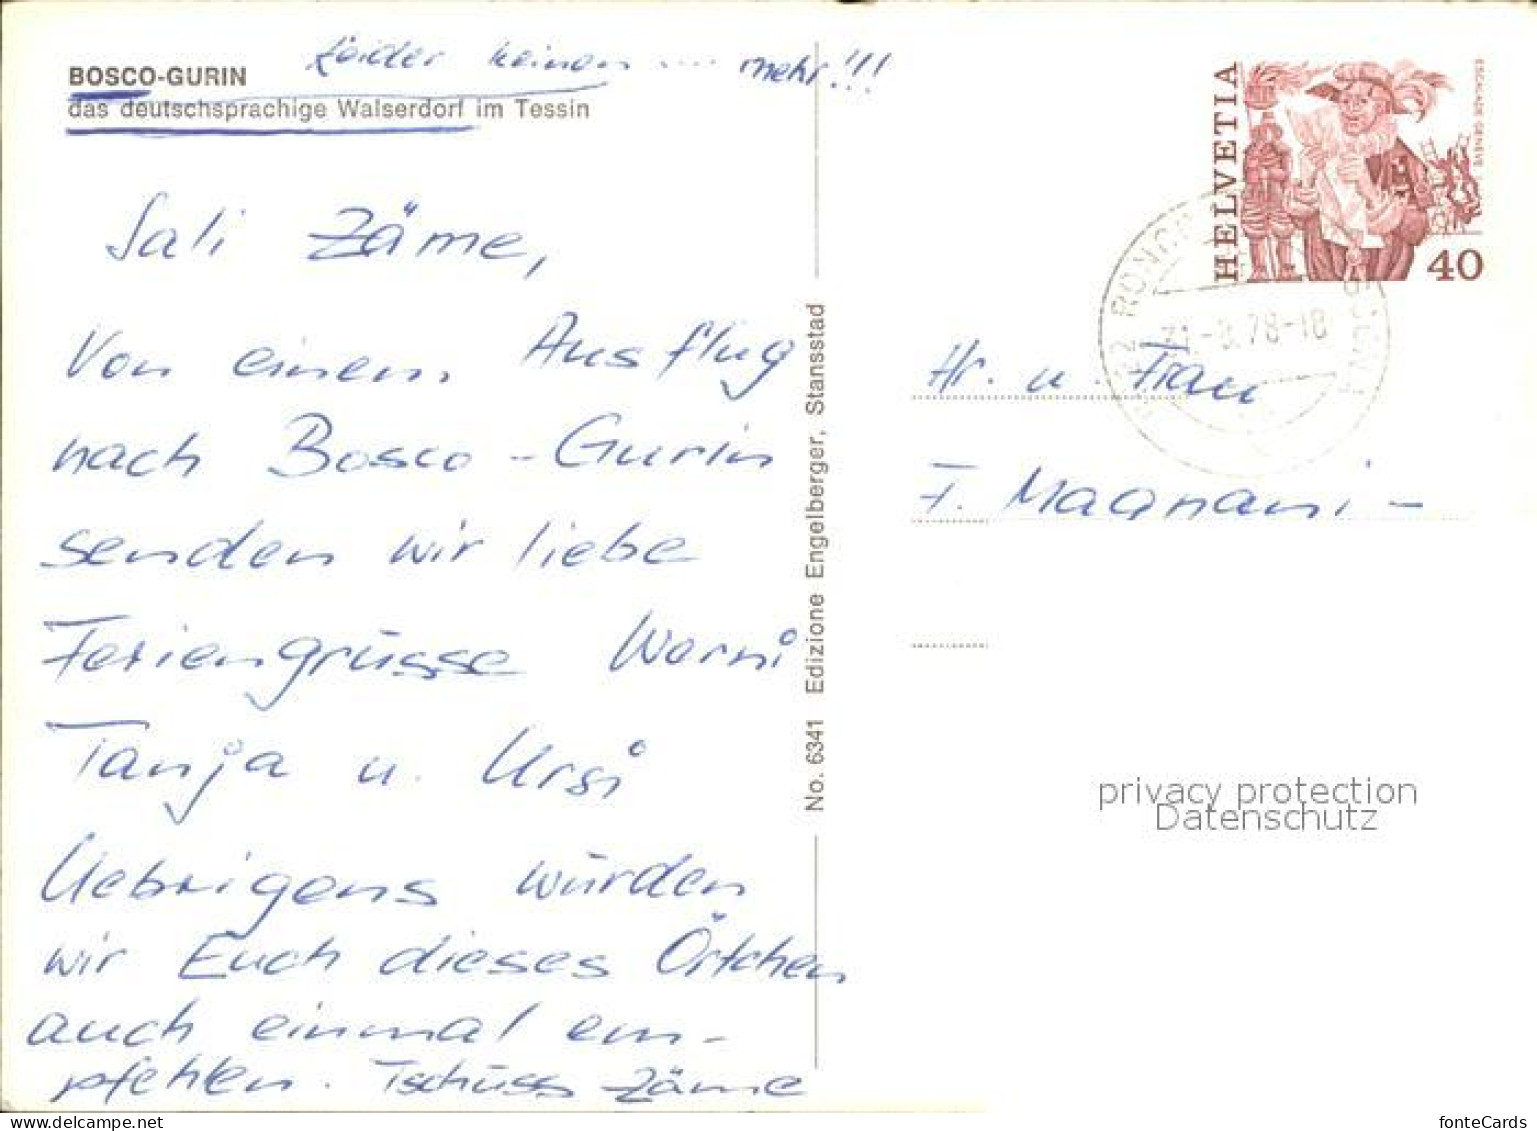 Leider keinen .... mehr!!!
BOSCO-GURIN
das deutschsprachige Walserdorf im Tessin
Sali Zäme,
Von einem Ausflug
nach Bosco-Gurin
senden wir liebe
Feriengrüsse Werni
Tanja u. Ursi
Uebrigens würden
wir Euch dieses Örtchen
auch einmal em-
pfehlen. Tschüss Zäme
No. 6341 Edizione Engelberger, Stansstad
HELVETIA
ESCALADE GENÈVE
40
78-18
Hr. u. Frau
F. Magnani-
privacy protection
Datenschutz
fonteCards
www.delcampe.net